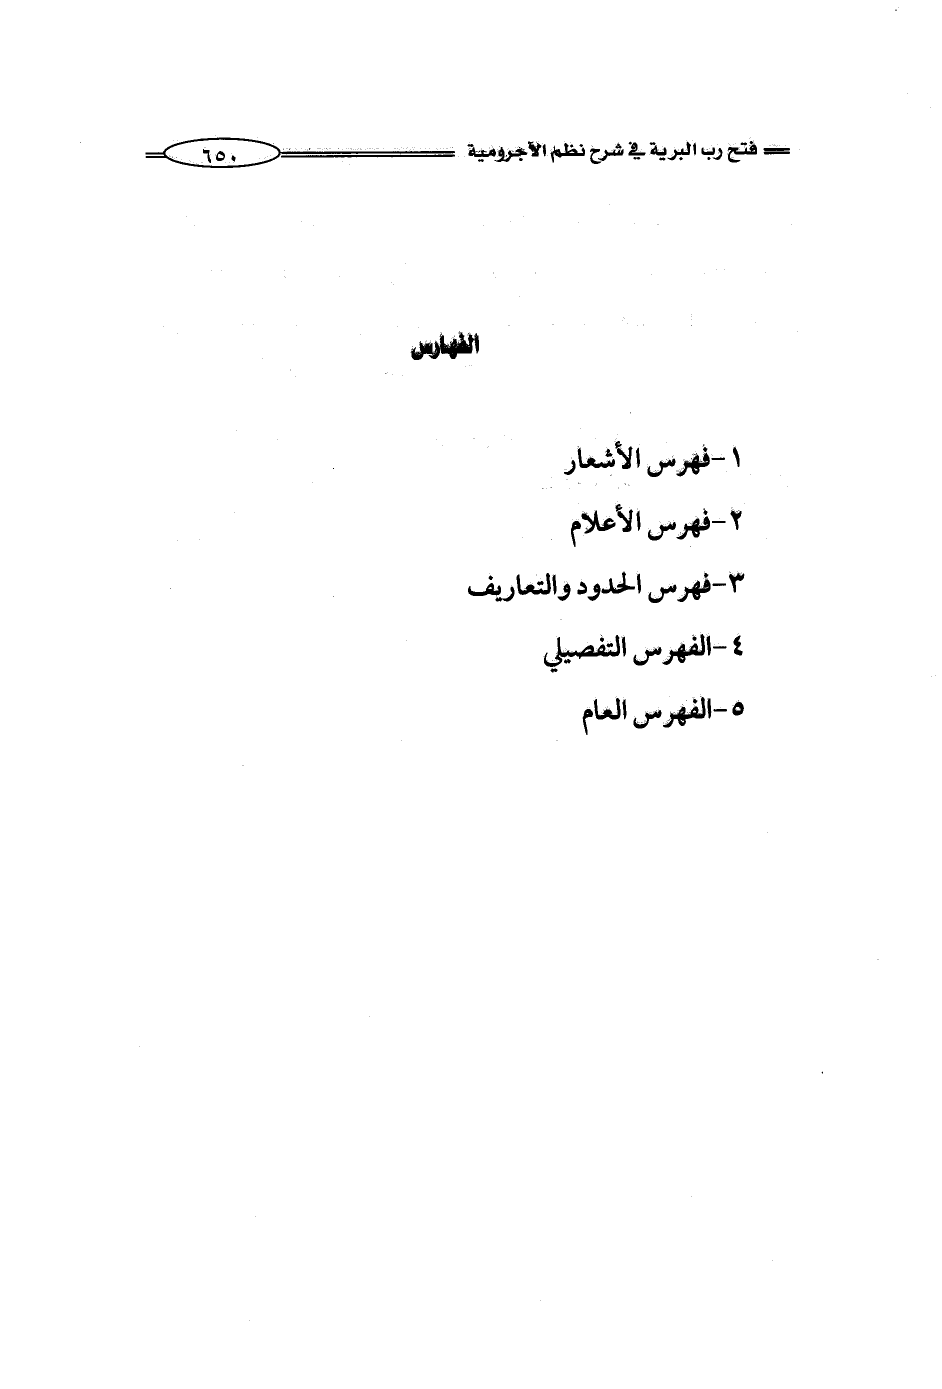 فتح رب البرية في شرح نظم الآجرومية ٦٥٠
الفهارس
١-فهرس الأشعار
٢-فهرس الأعلام
٣-فهرس الحدود والتعاريف
٤-الفهرس التفصيلي
٥-الفهرس العام